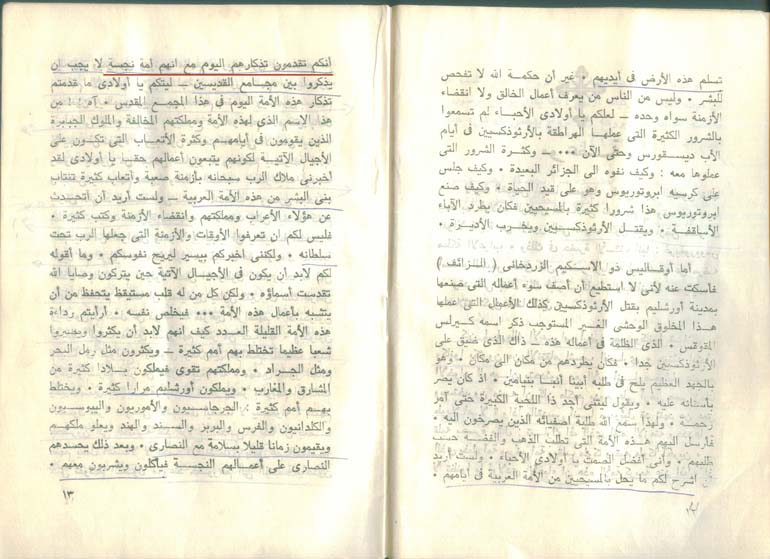 تسلم هذه الأرض فى أيديهم • غير أن حكمة الله لا تفحص
للبشر • وليس من الناس من يعرف أعمال الخالق ولا انقضاء
الأزمنة سواه وحده ــ لعلكم يا أولادى الأحباء لم تسمعوا
بالشرور الكثيرة التى عملها الهراطقة بالأرثوذكسيين فى أيام
الأب ديسقورس وحتى الآن ••• ــ وكثرة الشرور التى
عملوها معه : وكيف نفوه الى الجزائر البعيدة • وكيف جلس
على كرسيه ابروتوريوس وهو على قيد الحياة • وكيف صنع
ابروتوريوس هذا شرورا كثيرة بالمسيحيين فكان يطرد الآباء
الأساقفة • ويقتل الأرثوذكسيين ويخرب الأديرة •
أما أوقاليس ذو الاسكيم الزردخائى ( الزائف )
فأسكت عنه لأنى لا استطيع أن أصف سوء أعماله التى صنعها
بمدينة أورشليم بقتل الأرثوذكسيين كذلك الأعمال التى عملها
هذا المخلوق الوحشى الغير المستوجب ذكر اسمه كيرلس
المقوقس • الذى الظلمة فى أعماله هذه ــ ذاك الذى ضيق على
الأرثوذكسيين جدا • فكان يطردهم من مكان الى مكان • وهو
بالجهد العظيم يلح فى طلبه أبينا أنبا بنيامين • اذ كان يصر
بأسنانه عليه • ويقول ليتنى أجد ذا اللحية الكبيرة حتى آمر
• ولهذا سمع الله طلبة اصفيائه الذين يصرخون اليه •
فأرسل اليهم هذه الأمة التى تطلب الذهب والفضة حسب
طلبهم • وأنى أفضل الصمت يا أولادى الأحباء • ولست أريد
أن اشرح لكم ما يحل بالمسيحيين من الأمة العربية فى أيامهم •
١٢
أنكم تقدمون تذكارهم اليوم مع انهم أمة نجسة لا يجب ان
يذكروا بين مجامع القديسين ــ ليتكم يا أولادى ما قدمتم
تذكار هذه الأمة اليوم فى هذا المجمع المقدس • آه ! ! من
هذا الاسم الذى لهذه الأمة ومملكتهم المخالفة والملوك الجبابرة
الذين يقومون فى أيامهم وكثرة الأتعاب التى تكون على
الأجيال الآتية لكونهم يتبعون أعمالهم حقا يا أولادى لقد
أخبرنى ملاك الرب سبحانه بأزمنة صعبة وأتعاب كثيرة تنتاب
بنى البشر من هذه الأمة العربية ــ ولست أريد أن أتحدث
عن هؤلاء الأعراب ومملكتهم وانقضاء الأزمنة وكتب كثيرة •
فليس لكم ان تعرفوا الأوقات والأزمنة التى جعلها الرب تحت
سلطانه • ولكننى أخبركم بيسير لبريح نفوسكم • وما أقوله
لكم لابد ان يكون فى الأجيال الآتية حين يتركون وصايا الله
تقدست أسماؤه • ولكن كل من له قلب مستيقظ يتحفظ من أن
يتشبه بأعمال هذه الأمة ••• فيخلص نفسه • أرأيتم رداءة
هذه الأمة القليلة العدد كيف انهم لابد أن يكثروا ويصيروا
شعبا عظيما تختلط بهم أمم كثيرة ــ ويكثرون مثل رمل البحر
ومثل الجراد • ومملكتهم تقوى فيملكون بلادا كثيرة من
المشارق والمغارب • ويملكون أورشليم مرارا كثيرة • ويختلط
بهم أمم كثيرة : الجرجاسيون والأموريون واليبوسيون
والكلدانيون والفرس والبربر والسند والهند ويعلو ملكهم
ويقيمون زمانا قليلا بسلامة مع النصارى • وبعد ذلك يحسدهم
النصارى على أعمالهم النجسة فيأكلون ويشربون معهم •
١٣